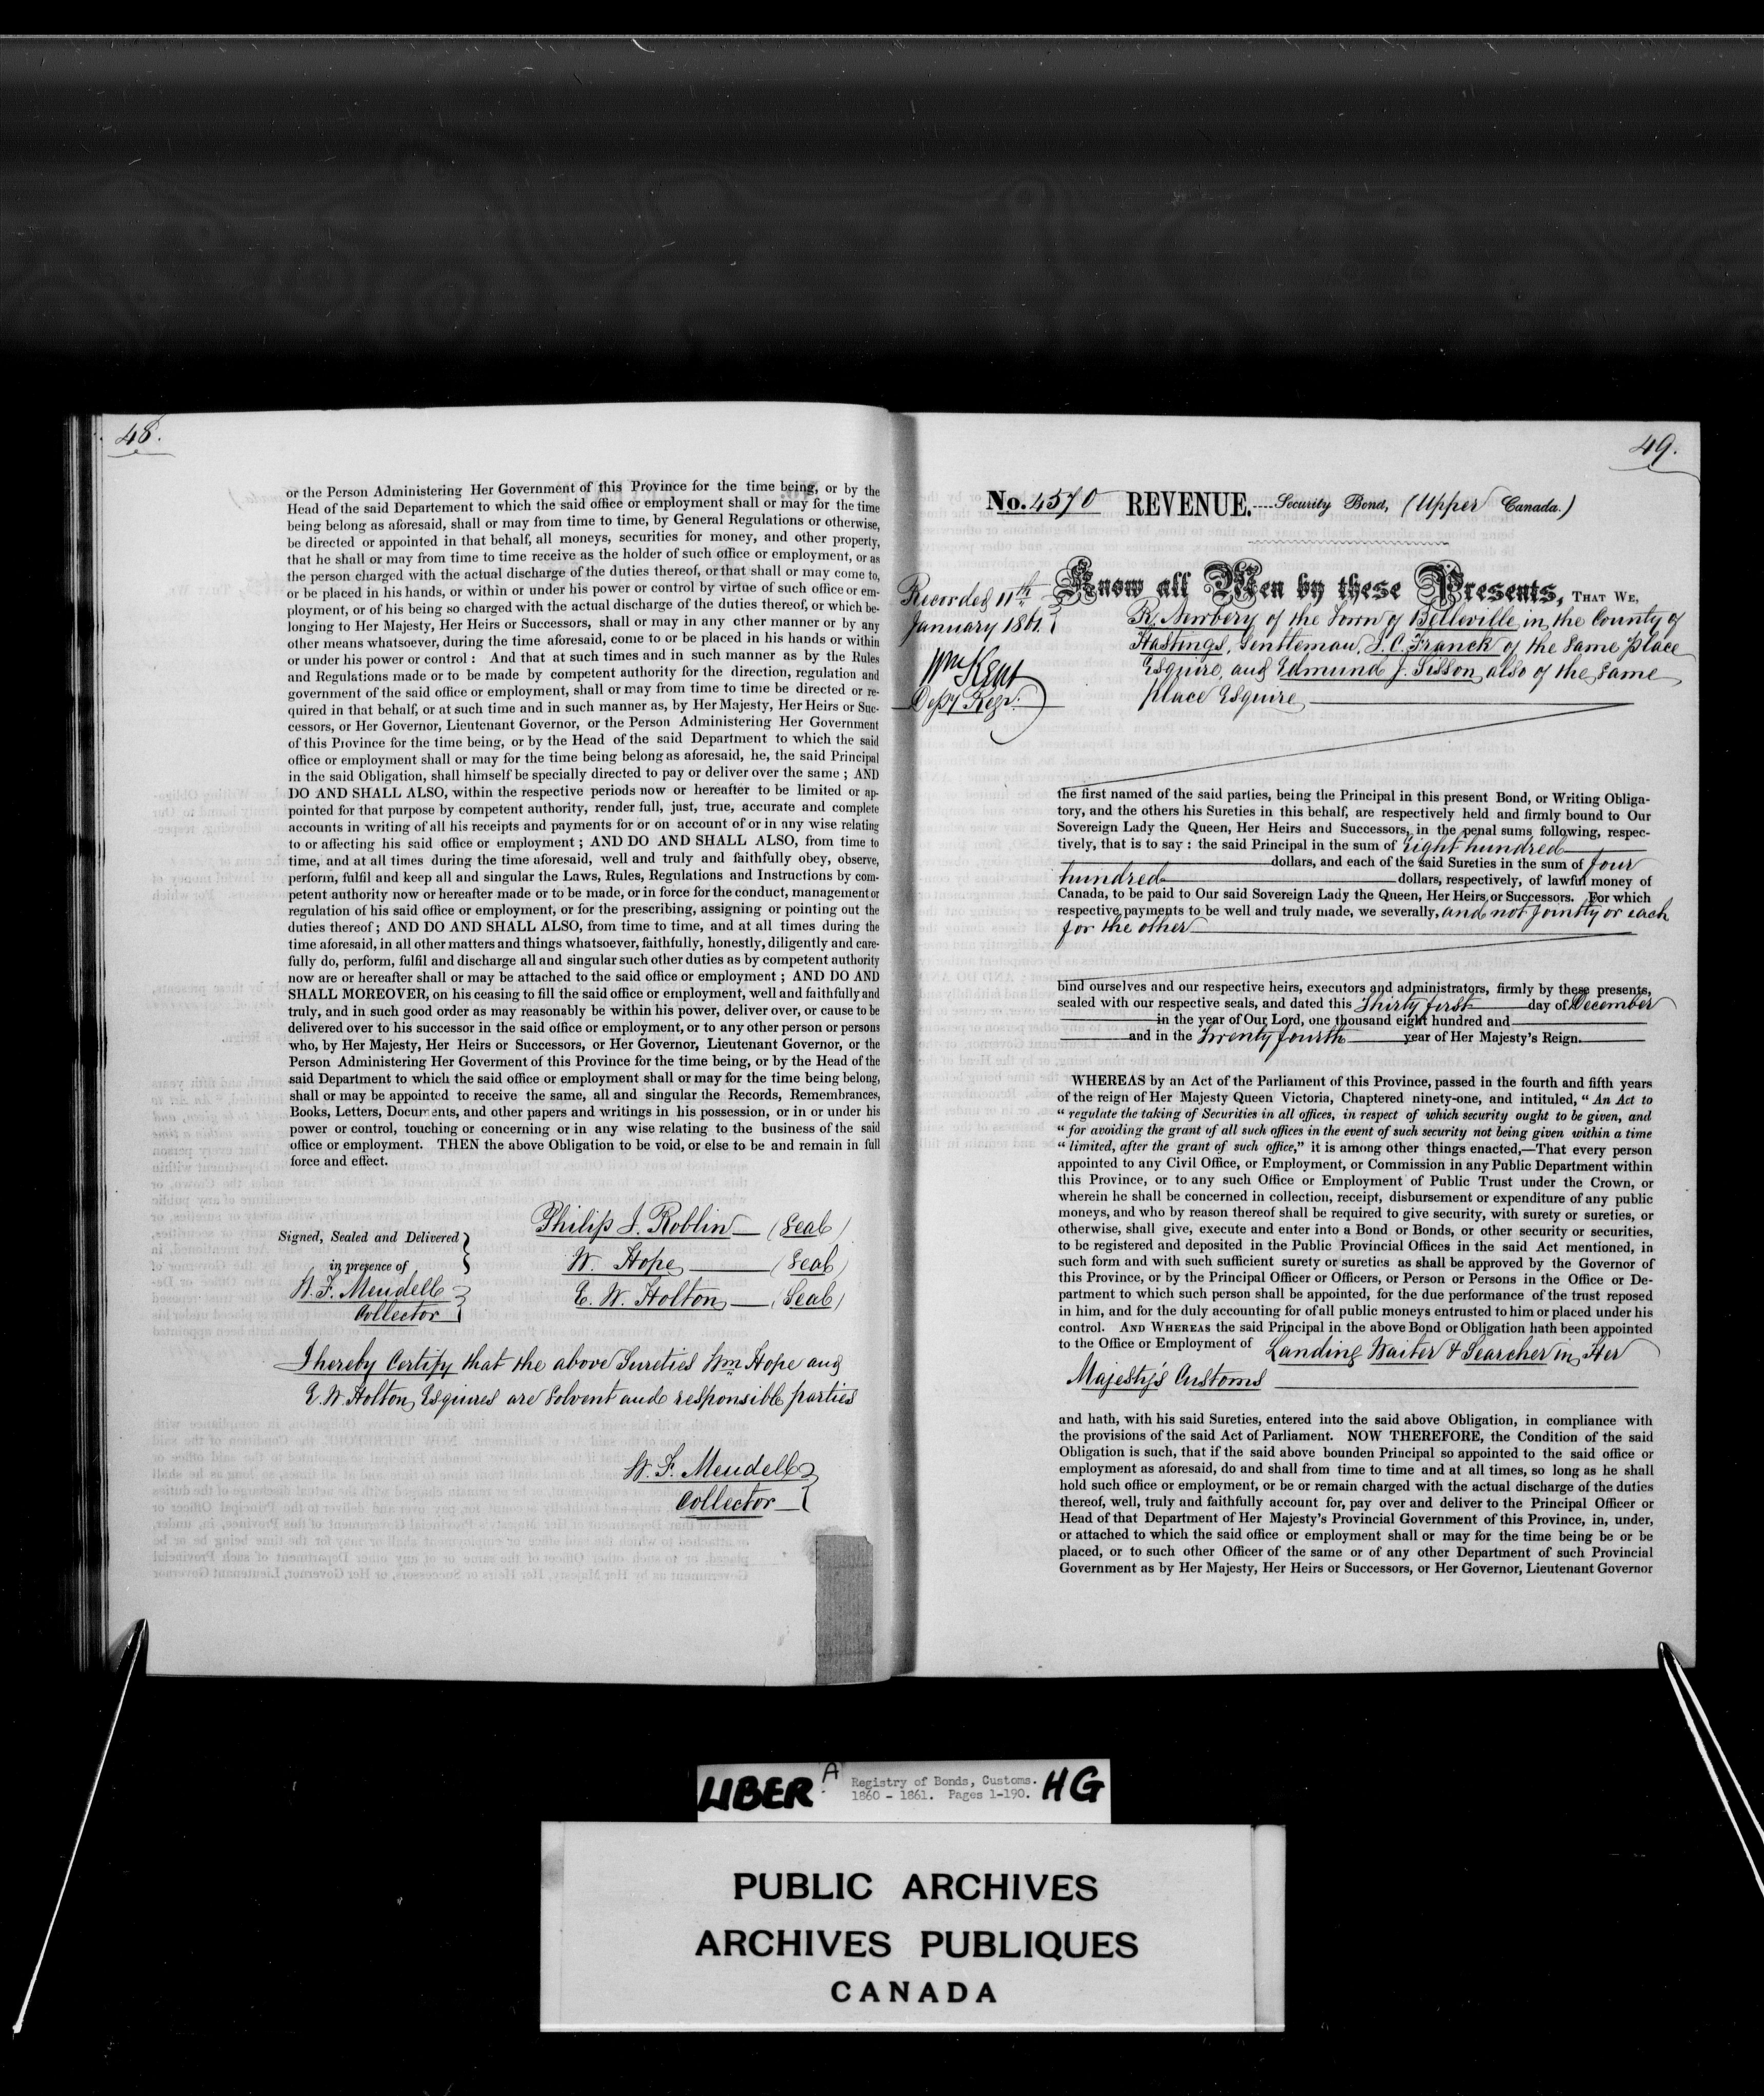 48.
or the Person Administering Her Government of this Province for the time being, or by the
Head of the said Departement to which the said office or employment shall or may for the time
being belong as aforesaid, shall or may from time to time, by General Regulations or otherwise,
be directed or appointed in that behalf, all moneys, securities for money, and other property,
that he shall or may from time to time receive as the holder of such office or employment, or as
the person charged with the actual discharge of the duties thereof, or that shall or may come to,
or be placed in his hands, or within or under his power or control by virtue of such office or em-
ployment, or of his being so charged with the actual discharge of the duties thereof, or which be-
longing to Her Majesty, Her Heirs or Successors, shall or may in any other manner or by any
other means whatsoever, during the time aforesaid, come to or be placed in his hands or within
or under his power or control : And that at such times and in such manner as by the Rules
and Regulations made or to be made by competent authority for the direction, regulation and
government of the said office or employment, shall or may from time to time be directed or re-
quired in that behalf, or at such time and in such manner as, by Her Majesty, Her Heirs or Suc-
cessors, or Her Governor, Lieutenant Governor, or the Person Administering Her Government
of this Province for the time being, or by the Head of the said Department to which the said
office or employment shall or may for the time being belong as aforesaid, he, the said Principal
in the said Obligation, shall himself be specially directed to pay or deliver over the same ; AND
DO AND SHALL ALSO, within the respective periods now or hereafter to be limited or ap-
pointed for that purpose by competent authority, render full, just, true, accurate and complete
accounts in writing of all his receipts and payments for or on account of or in any wise relating
to or affecting his said office or employment ; AND DO AND SHALL ALSO, from time to
time, and at all times during the time aforesaid, well and truly and faithfully obey, observe,
perform, fulfil and keep all and singular the Laws, Rules, Regulations and Instructions by com-
petent authority now or hereafter made or to be made, or in force for the conduct, management or
regulation of his said office or employment, or for the prescribing, assigning or pointing out the
duties thereof ; AND DO AND SHALL ALSO, from time to time, and at all times during the
time aforesaid, in all other matters and things whatsoever, faithfully, honestly, diligently and care-
fully do, perform, fulfil and discharge all and singular such other duties as by competent authority
now are or hereafter shall or may be attached to the said office or employment ; AND DO AND
SHALL MOREOVER, on his ceasing to fill the said office or employment, well and faithfully and
truly, and in such good order as may reasonably be within his power, deliver over, or cause to be
delivered over to his successor in the said office or employment, or to any other person or persons
who, by Her Majesty, Her Heirs or Successors, or Her Governor, Lieutenant Governor, or the
Person Administering Her Goverment of this Province for the time being, or by the Head of the
said Department to which the said office or employment shall or may for the time being belong,
shall or may be appointed to receive the same, all and singular the Records, Remembrances,
Books, Letters, Documents, and other papers and writings in his possession, or in or under his
power or control, touching or concerning or in any wise relating to the business of the said
office or employment. THEN the above Obligation to be void, or else to be and remain in full
force and effect.
Philip J. Roblin (Seal)
Signed, Sealed and Delivered
W. Hope (Seal)
in presence of
W. F. Meudell
E. W. Holton (Seal)
Collector
I hereby Certify that the above Sureties Wm Hope and
E. W. Holton, Esquires are solvent and responsible parties
W. F. Meudell
Collector
49.
No. 4570 REVENUE.----Security Bond, (Upper Canada.)
Know all Men by these Presents, THAT WE,
Recorded 11th
January 1861.
Wm Kent
Depy Regr.
R. Newbery of the Town of Belleville in the County of
Hastings, Gentleman, J. C. Franck of the same place
Esquire, and Edmund J. Sisson also of the same
place Esquire
the first named of the said parties, being the Principal in this present Bond, or Writing Obliga-
tory, and the others his Sureties in this behalf, are respectively held and firmly bound to Our
Sovereign Lady the Queen, Her Heirs and Successors, in the penal sums following, respec-
tively, that is to say : the said Principal in the sum of Eight hundred
dollars, and each of the said Sureties in the sum of four
hundred dollars, respectively, of lawful money of
Canada, to be paid to Our said Sovereign Lady the Queen, Her Heirs or Successors. For which
respective payments to be well and truly made, we severally, and not jointly or each
for the other
bind ourselves and our respective heirs, executors and administrators, firmly by these presents,
sealed with our respective seals, and dated this Thirty first day of December
in the year of Our Lord, one thousand eight hundred and
and in the Twenty fourth year of Her Majesty's Reign.
WHEREAS by an Act of the Parliament of this Province, passed in the fourth and fifth years
of the reign of Her Majesty Queen Victoria, Chaptered ninety-one, and intituled, " An Act to
" regulate the taking of Securities in all offices, in respect of which security ought to be given, and
" for avoiding the grant of all such offices in the event of such security not being given within a time
" limited, after the grant of such office," it is among other things enacted,—That every person
appointed to any Civil Office, or Employment, or Commission in any Public Department within
this Province, or to any such Office or Employment of Public Trust under the Crown, or
wherein he shall be concerned in collection, receipt, disbursement or expenditure of any public
moneys, and who by reason thereof shall be required to give security, with surety or sureties, or
otherwise, shall give, execute and enter into a Bond or Bonds, or other security or securities,
to be registered and deposited in the Public Provincial Offices in the said Act mentioned, in
such form and with such sufficient surety or sureties as shall be approved by the Governor of
this Province, or by the Principal Officer or Officers, or Person or Persons in the Office or De-
partment to which such person shall be appointed, for the due performance of the trust reposed
in him, and for the duly accounting for of all public moneys entrusted to him or placed under his
control. AND WHEREAS the said Principal in the above Bond or Obligation hath been appointed
to the Office or Employment of Landing Waiter & Searcher in Her
Majesty's Customs
and hath, with his said Sureties, entered into the said above Obligation, in compliance with
the provisions of the said Act of Parliament. NOW THEREFORE, the Condition of the said
Obligation is such, that if the said above bounden Principal so appointed to the said office or
employment as aforesaid, do and shall from time to time and at all times, so long as he shall
hold such office or employment, or be or remain charged with the actual discharge of the duties
thereof, well, truly and faithfully account for, pay over and deliver to the Principal Officer or
Head of that Department of Her Majesty's Provincial Government of this Province, in, under,
or attached to which the said office or employment shall or may for the time being be or be
placed, or to such other Officer of the same or of any other Department of such Provincial
Government as by Her Majesty, Her Heirs or Successors, or Her Governor, Lieutenant Governor
LIBER A Registry of Bonds, Customs. HG
1860 - 1861. Pages 1-190.
PUBLIC ARCHIVES
ARCHIVES PUBLIQUES
CANADA